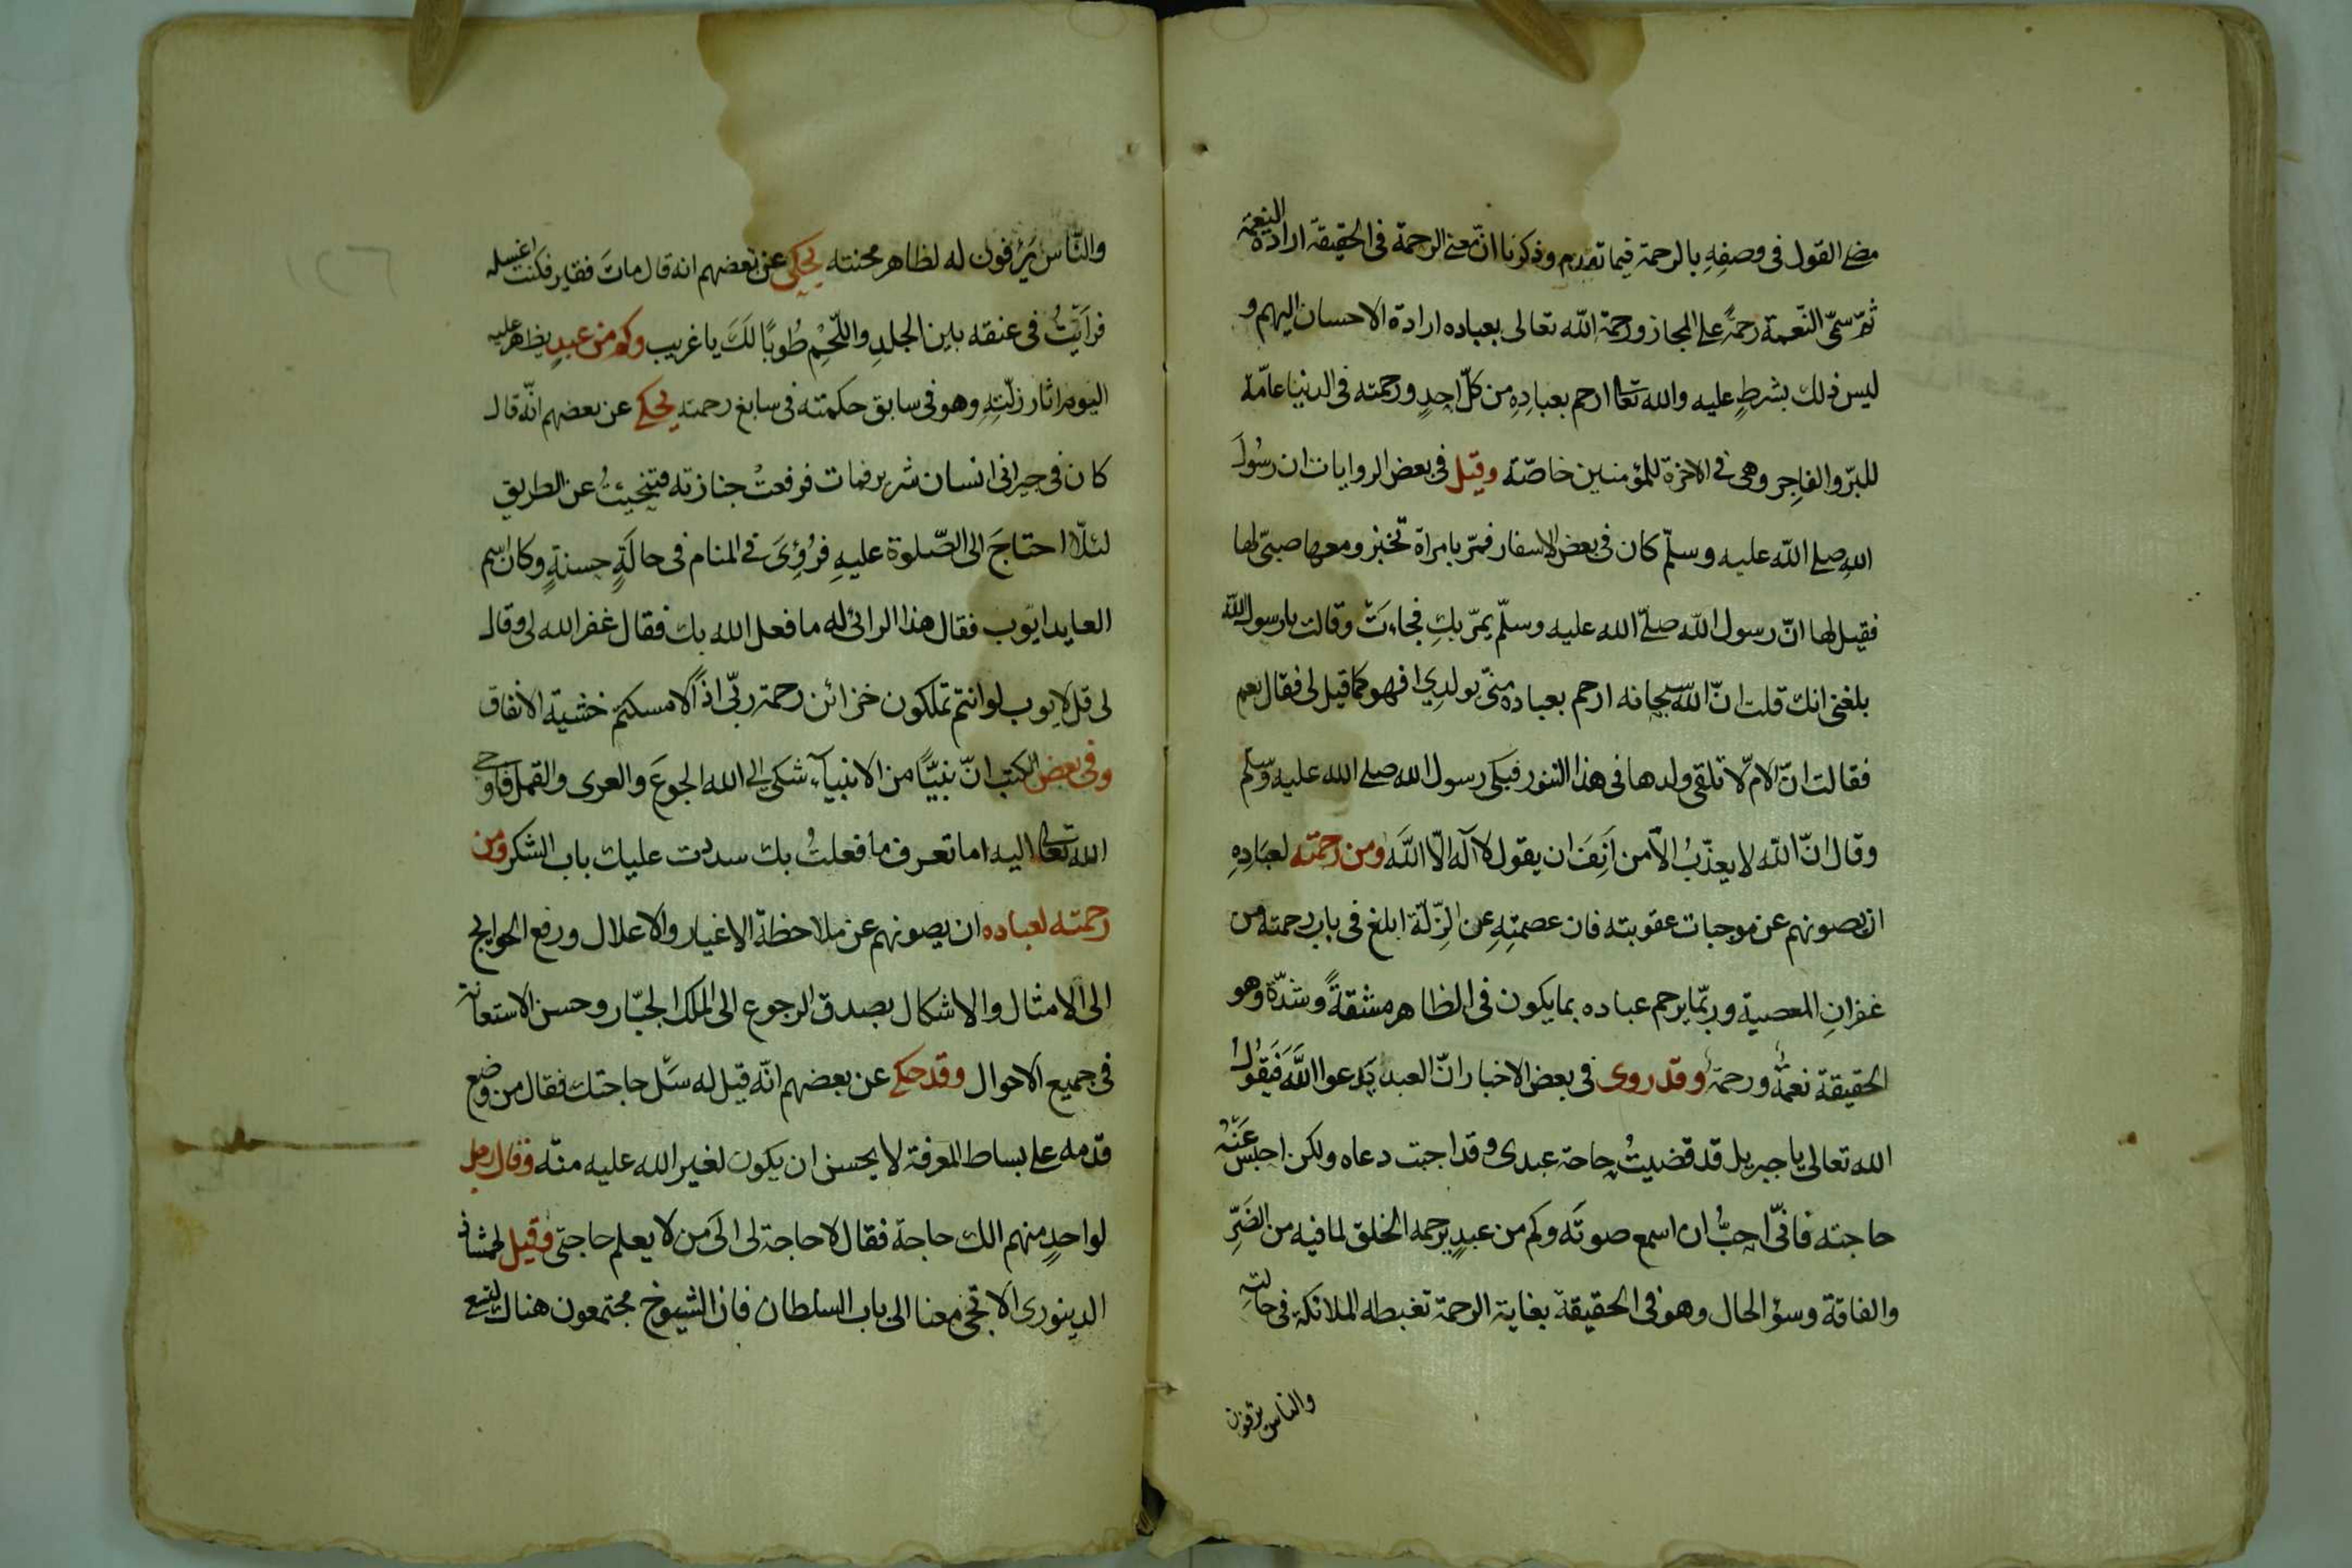 مضى القول فى وصفهِ بالرحمة فيما تقدم وذكرنا انّ معنى الرحمة فى الحقيقة ارادة النعمة
ثمّ سمّى النّعمة رحمةً على المجاز ورحمة الله تعالى بعباده ارادة الاحسان اليهم و
ليس ذلك بشرطٍ عليه والله تعالى ارحم بعبادِهِ من كلّ احدٍ ورحمته فى الدنيا عامّة
للبرّ والفاجِر وهى فى الاخرة للمؤمنين خاصّة وقيل فى بعض الروايات ان رسُولَ
اللهِ صلى الله عليه وسلّم كان فى بعض الاسفار فمرّ بامراة تخبز ومعها صبىّ لها
فقيل لها انّ رسول الله صلّى الله عليه وسلّم يمرّ بكِ فجاءتْ وقالت يا رسول الله
بلغنى انك قلت انّ الله سبحانه ارحم بعباده منىّ بولدِى افهو كما قيل لى فقال نعم
فقالت انّ الامّ لا تلقى ولدها فى هذا التنور فبكى رسول الله صلى الله عليه وسلم
وقال انّ الله لا يعذّبُ الّا من اَنِفَ ان يقول لا آله الّا اللهَ ومن رحمته لعبَادِهِ
ان يصونهم عن موجبات عقوبته فان عصمتِهِ عن الزّلّة ابلغ فى باب رحمته من
غفرانِ المعصية وربّما يرحم عباده بما يكون فى الظاهر مشقةً وشدّة وهو
الحقيقة نعمةٌ ورحمةٌ وقد روى فى بعض الاخبار انّ العبد يَدعوا اللَّهَ فَيَقُولُ
الله تعالى يا جبريل قد قضيتُ حاجة عبدى وقد اجبت دعاه ولكن احبس عَنْهُ
حاجته فانّى احِبُّ ان اسمع صوتَه وكم من عبدٍ يرحمه الخلق لما فيه من الضَرِّ
والفاقة وسؤ الحال وهو فى الحقيقة بغاية الرحمة تغبطه الملائكة فى حالتِهِ
والناس يرقون
والنّاس يَرْقون له لظاهر محنته يحكى عن بعضهم انه قال ماتَ فقير فكنت اغسله
فرايتُ فى عنقه بين الجلدِ واللّحْمِ طُوبًا لَكَ يا غريب وكم من عبدٍ يظهر عليه
اليوم اثار زلّتِهِ وهو فى سابق حكمته فى سابغ رحمته يحكى عن بعضهم انّه قال
كان فى جيرانى انسان شرير فمات فرفعتْ جنازته فتنحيتُ عن الطريق
لئلّا احتاجَ الى الصّلوة عليهِ فرُؤِىَ فى المنام فى حالَةٍ حسنةٍ وكان اسم
العابد ايّوب فقال هذا الرائى له ما فعل الله بك فقال غفر الله لى وقال
لى قل لايوب لو انتم تملكون خزائن رحمة ربّى اذًا لامسكتم خشية الانفاق
وفى بعض الكتب انّ نبيًّا من الانبيآء شكى الى الله الجوعَ والعرى والقمل فاوحى
الله تعالى اليه اما تعرف ما فعلتُ بك سددت عليك باب الشكر ومن
رحمته لعباده ان يصونهم عن ملاحظة الاغيار والاعلال ورفع الحوايج
الى الامثال والاشكال بصدق الرجوع الى الملك الجبّار وحسن الاستعانة
فى جميع الاحوال وقد حكى عن بعضهم انّه قيل له سَل حاجتك فقال من وضع
قدمه على بساط المعرفة لا يحسن ان يكون لغير الله عليه منّه وقال رجل
لواحدٍ منهم الك حاجة فقال لا حاجة لى الَى من لا يعلم حاجتى وقيل لممشاذ
الدينورى الا تجىء معنا الى باب السلطان فان الشيوخ مجتمعون هناك